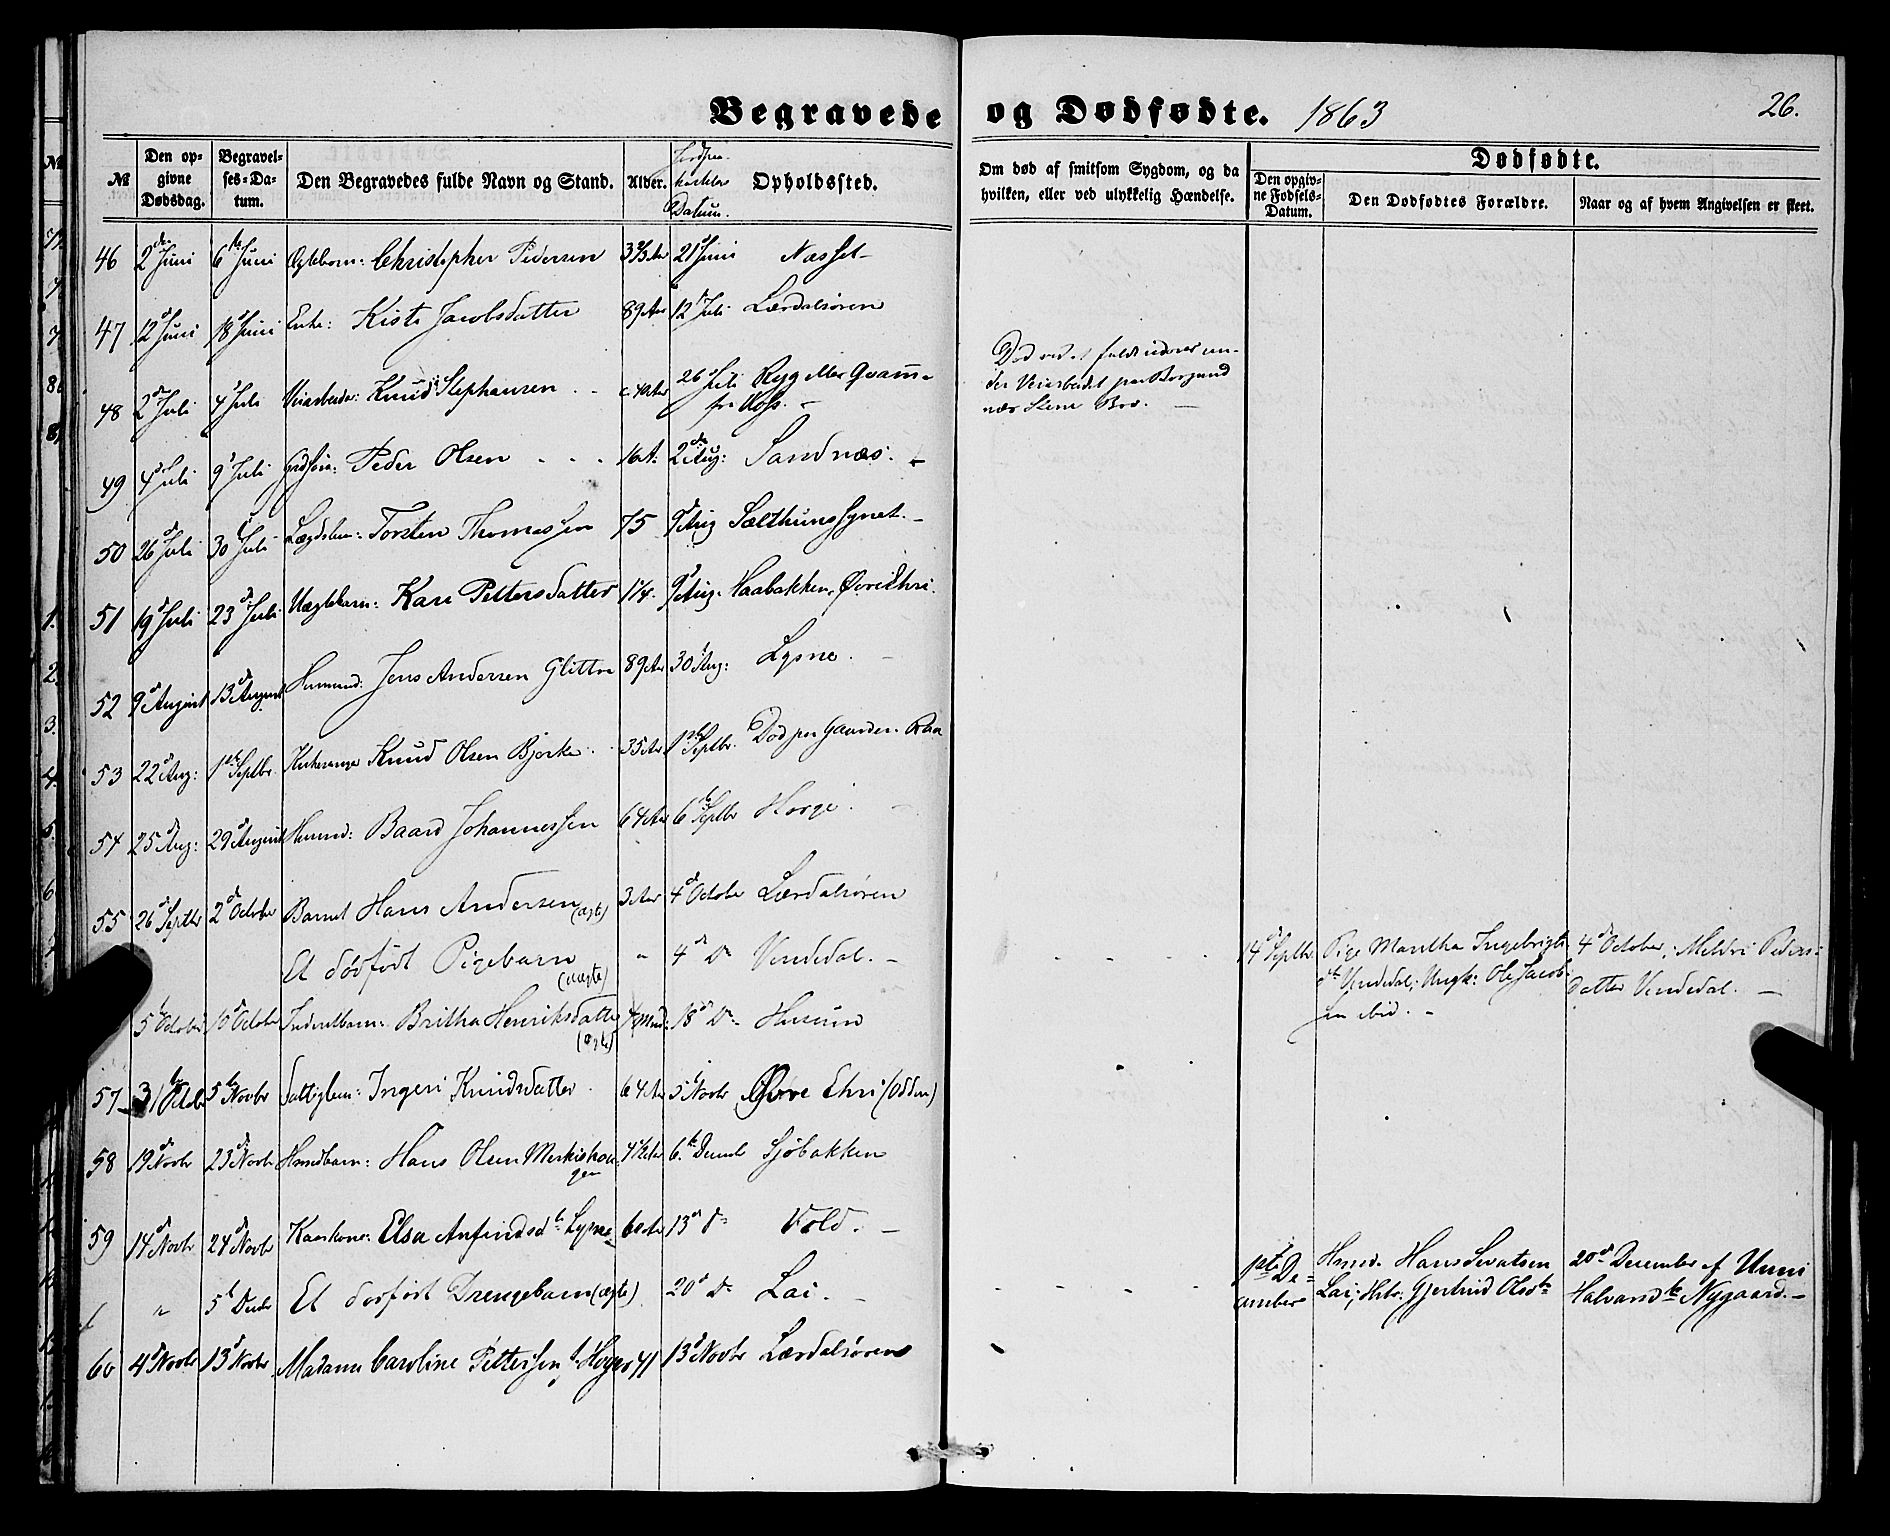 Begravede og Dødfødte. 1863 26.
№ Den opgivne Dødsdag. Begravelses-Datum. Den Begravedes fulde Navn og Stand. Alder. Datum. Opholdssted. Om død af smitsom Sygdom, og da hvilken, eller ved ulykkelig Hændelse. Dødfødte.
Den opgivne Fødsels-Datum. Den Dødfødtes Forældre. Naar og af hvem Angivelsen er skeet.
46 2den Juni 6te Juni Ægtebarn: Christopher Pedersen 21d Juni Næsset
47 12d Juni 18d Juni Enke: Kisti Jacobsdatter 89 Aar 12d Juli Lærdalsøren
48 2d Juli 4d Juli Veiarbeider: Knud Stephansen c. 40 Aar 26d Juli Ryg eller Qvamme fra Voss. Død ved at falde udover under Veiarbeidet paa Borgund nær Stene Bro.
49 4d Juli 9d Juli Grdsøn: Peder Olsen 16 A. 2den Aug: Sandnæs.
50 26d Juli 30d Juli Lægdslem: Torsten Thomassen 75 9d Aug Sælthunssynet.
51 19d Juli 23d Juli Uægtebarn: Kari Pettersdatter 1 1/4. 9d Aug. Haabakken, Øvri Ehri.
52 9d August 13d August Huusmd: Jens Andersen Glittre 89 Aar 30d Aug: Lysne.
53 22d Aug: 1ste Septbr. Kirkesanger Knud Olsen Bjørke 35 Aar 1ste Septbr. Død paa Gaarden Raa
54 25d Aug: 29d August Huusmd: Baard Johannessen 64 Aar 6te Septbr Horge.
55 26d Septbr 2d October Barnet Hans Andersen (ægte) 3 Aar 4d October Lærdalsøren
Et dødfødt Pigebarn (uægte) " 4d Do Vindedal. 14d Septbr Pige Martha Ingebrigtsdtr Vindedal; Ungk: Ole Jacobsen ibid. 4d October, Meldri Pedersdatter Vindedal.
5te October 10d October Inderstbarn: Britha Henriksdatter (ægte) 18d Do Husum
57 31te Octobr 5te Novbr Fattiglem: Ingeri Knudsdatter 64 Aar 5te Novbr Øvre Ehri (Odden)
58 19d Novbr 23d Novbr Hmdbarn: Hans Olsen Merkishaugen 4 1/2 Aar 6te Decmb Sjøbakken
59 14d Novbr 24d Novbr Kaarkone: Elsa Anfindsdtr Lysne 60 Aar 13d Do Vold.
" 5te Decbr Et dødfødt Drengebarn (ægte) 20d Do Lai. 1ste December Hmd. Hans Sivatsen Lai; Hstr: Gjertrud Olsdtr 20d December af Unni Halvarsdtr Nygaard.
60 4d Novbr 13d Novbr Madame Caroline Pettersen f. Høyer 41 13d Novbr Lærdalsøren